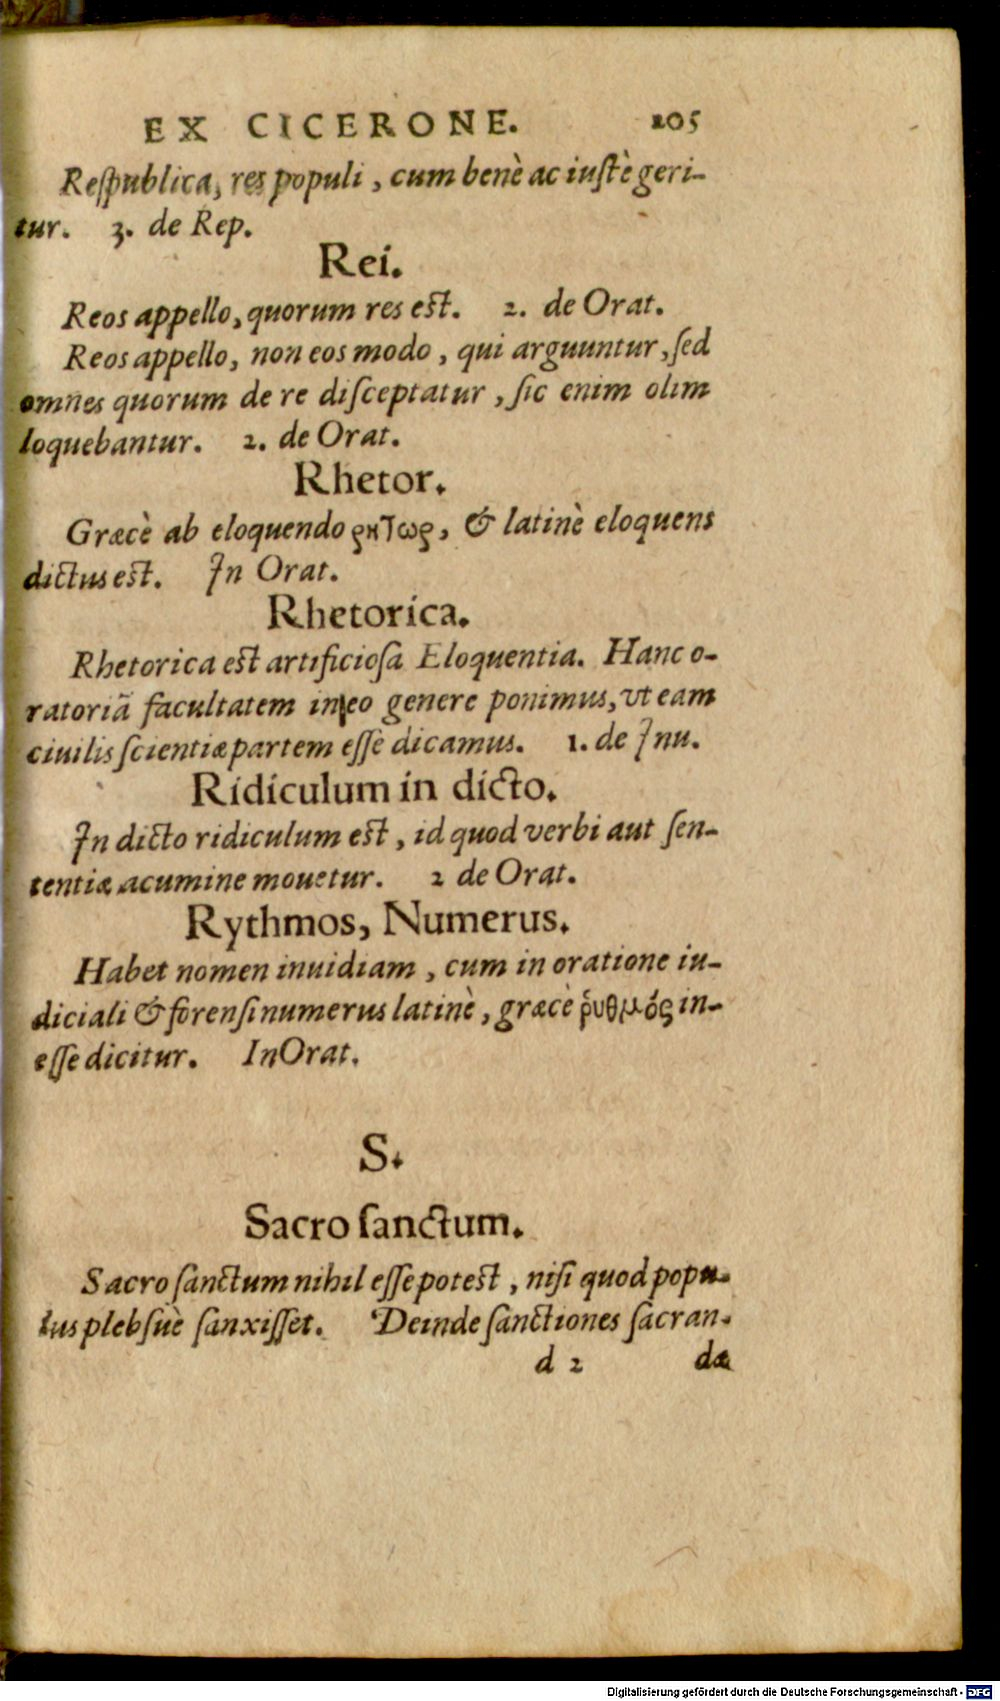 EX CICERONE. 105
Reſpublica, res populi, cum benè ac iuſtè geri-
tur. 3. de Rep.
Rei.
Reos appello, quorum res eſt. 2. de Orat.
Reos appello, non eos modo, qui arguuntur, ſed
omnes quorum de re diſceptatur, ſic enim olim
loquebantur. 2. de Orat.
Rhetor.
Græcè ab eloquendo ϱκτωϱ, & latinè eloquens
dictus eſt. In Orat.
Rhetorica.
Rhetorica eſt artificioſa Eloquentia. Hanc o-
ratoriã facultatem in eo genere ponimus, vt eam
ciuilis ſcientiæ partem eſſe dicamus. 1. de Inu.
Ridiculum in dicto.
In dicto ridiculum eſt, id quod verbi aut ſen-
tentiæ acumine mouetur. 2 de Orat.
Rythmos, Numerus.
Habet nomen inuidiam, cum in oratione iu-
diciali & forenſi numerus latinè, græcè ῥυθμός in-
eſſe dicitur. In Orat.
S.
Sacro ſanctum.
Sacro ſanctum nihil eſſe poteſt, niſi quod popu-
lus plebſuè ſanxiſſet. Deinde ſanctiones ſacran-
d 2 dæ
Digitalisierung gefördert durch die Deutsche Forschungsgemeinschaft - DFG